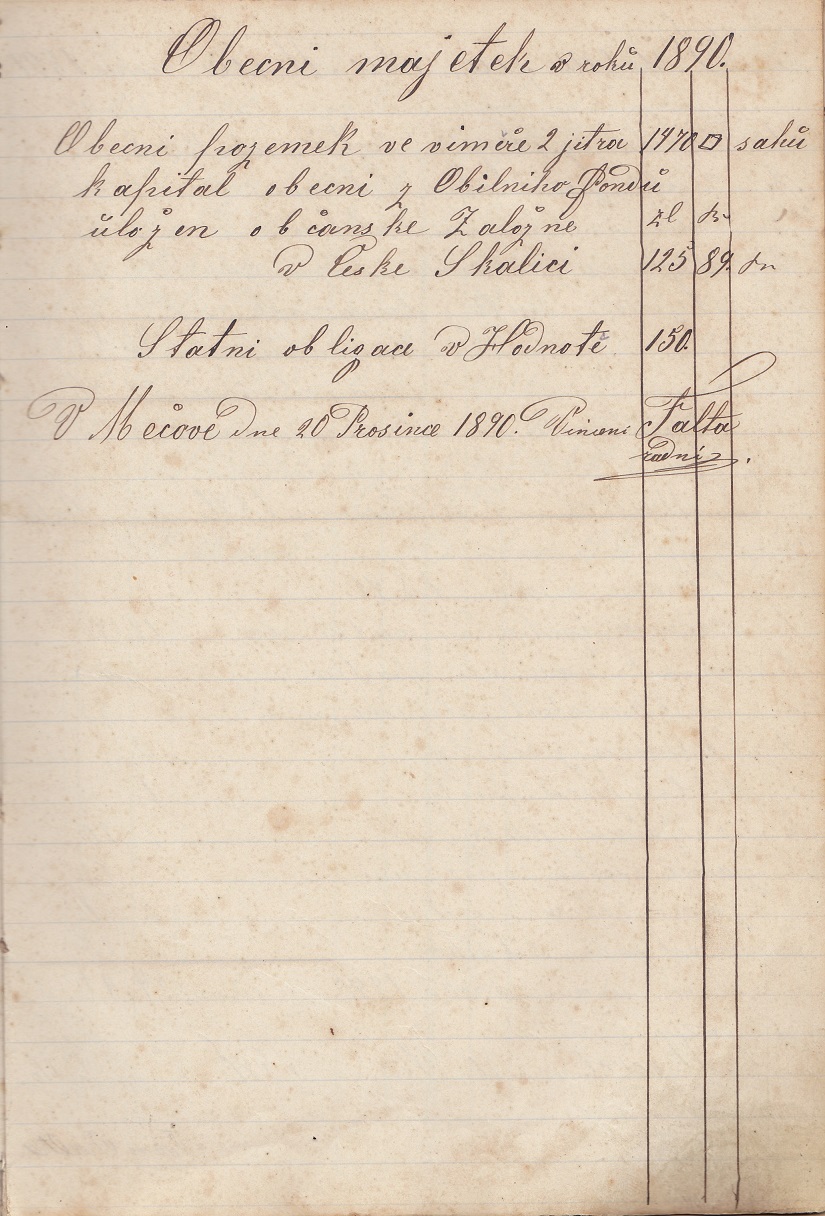 Obecni majetek v roků 1890.
Obecni pozemek ve viměře 2 jitra 1470 □ sahů
kapital obecni z Obilniho Fondů
ůložen občanske Založne zl kr
v Česke Skalici 125 89. kr
Statni obligace v Hodnotě 150.
V Mečově dne 20 Prosince 1890. Vincenc Falta
radní